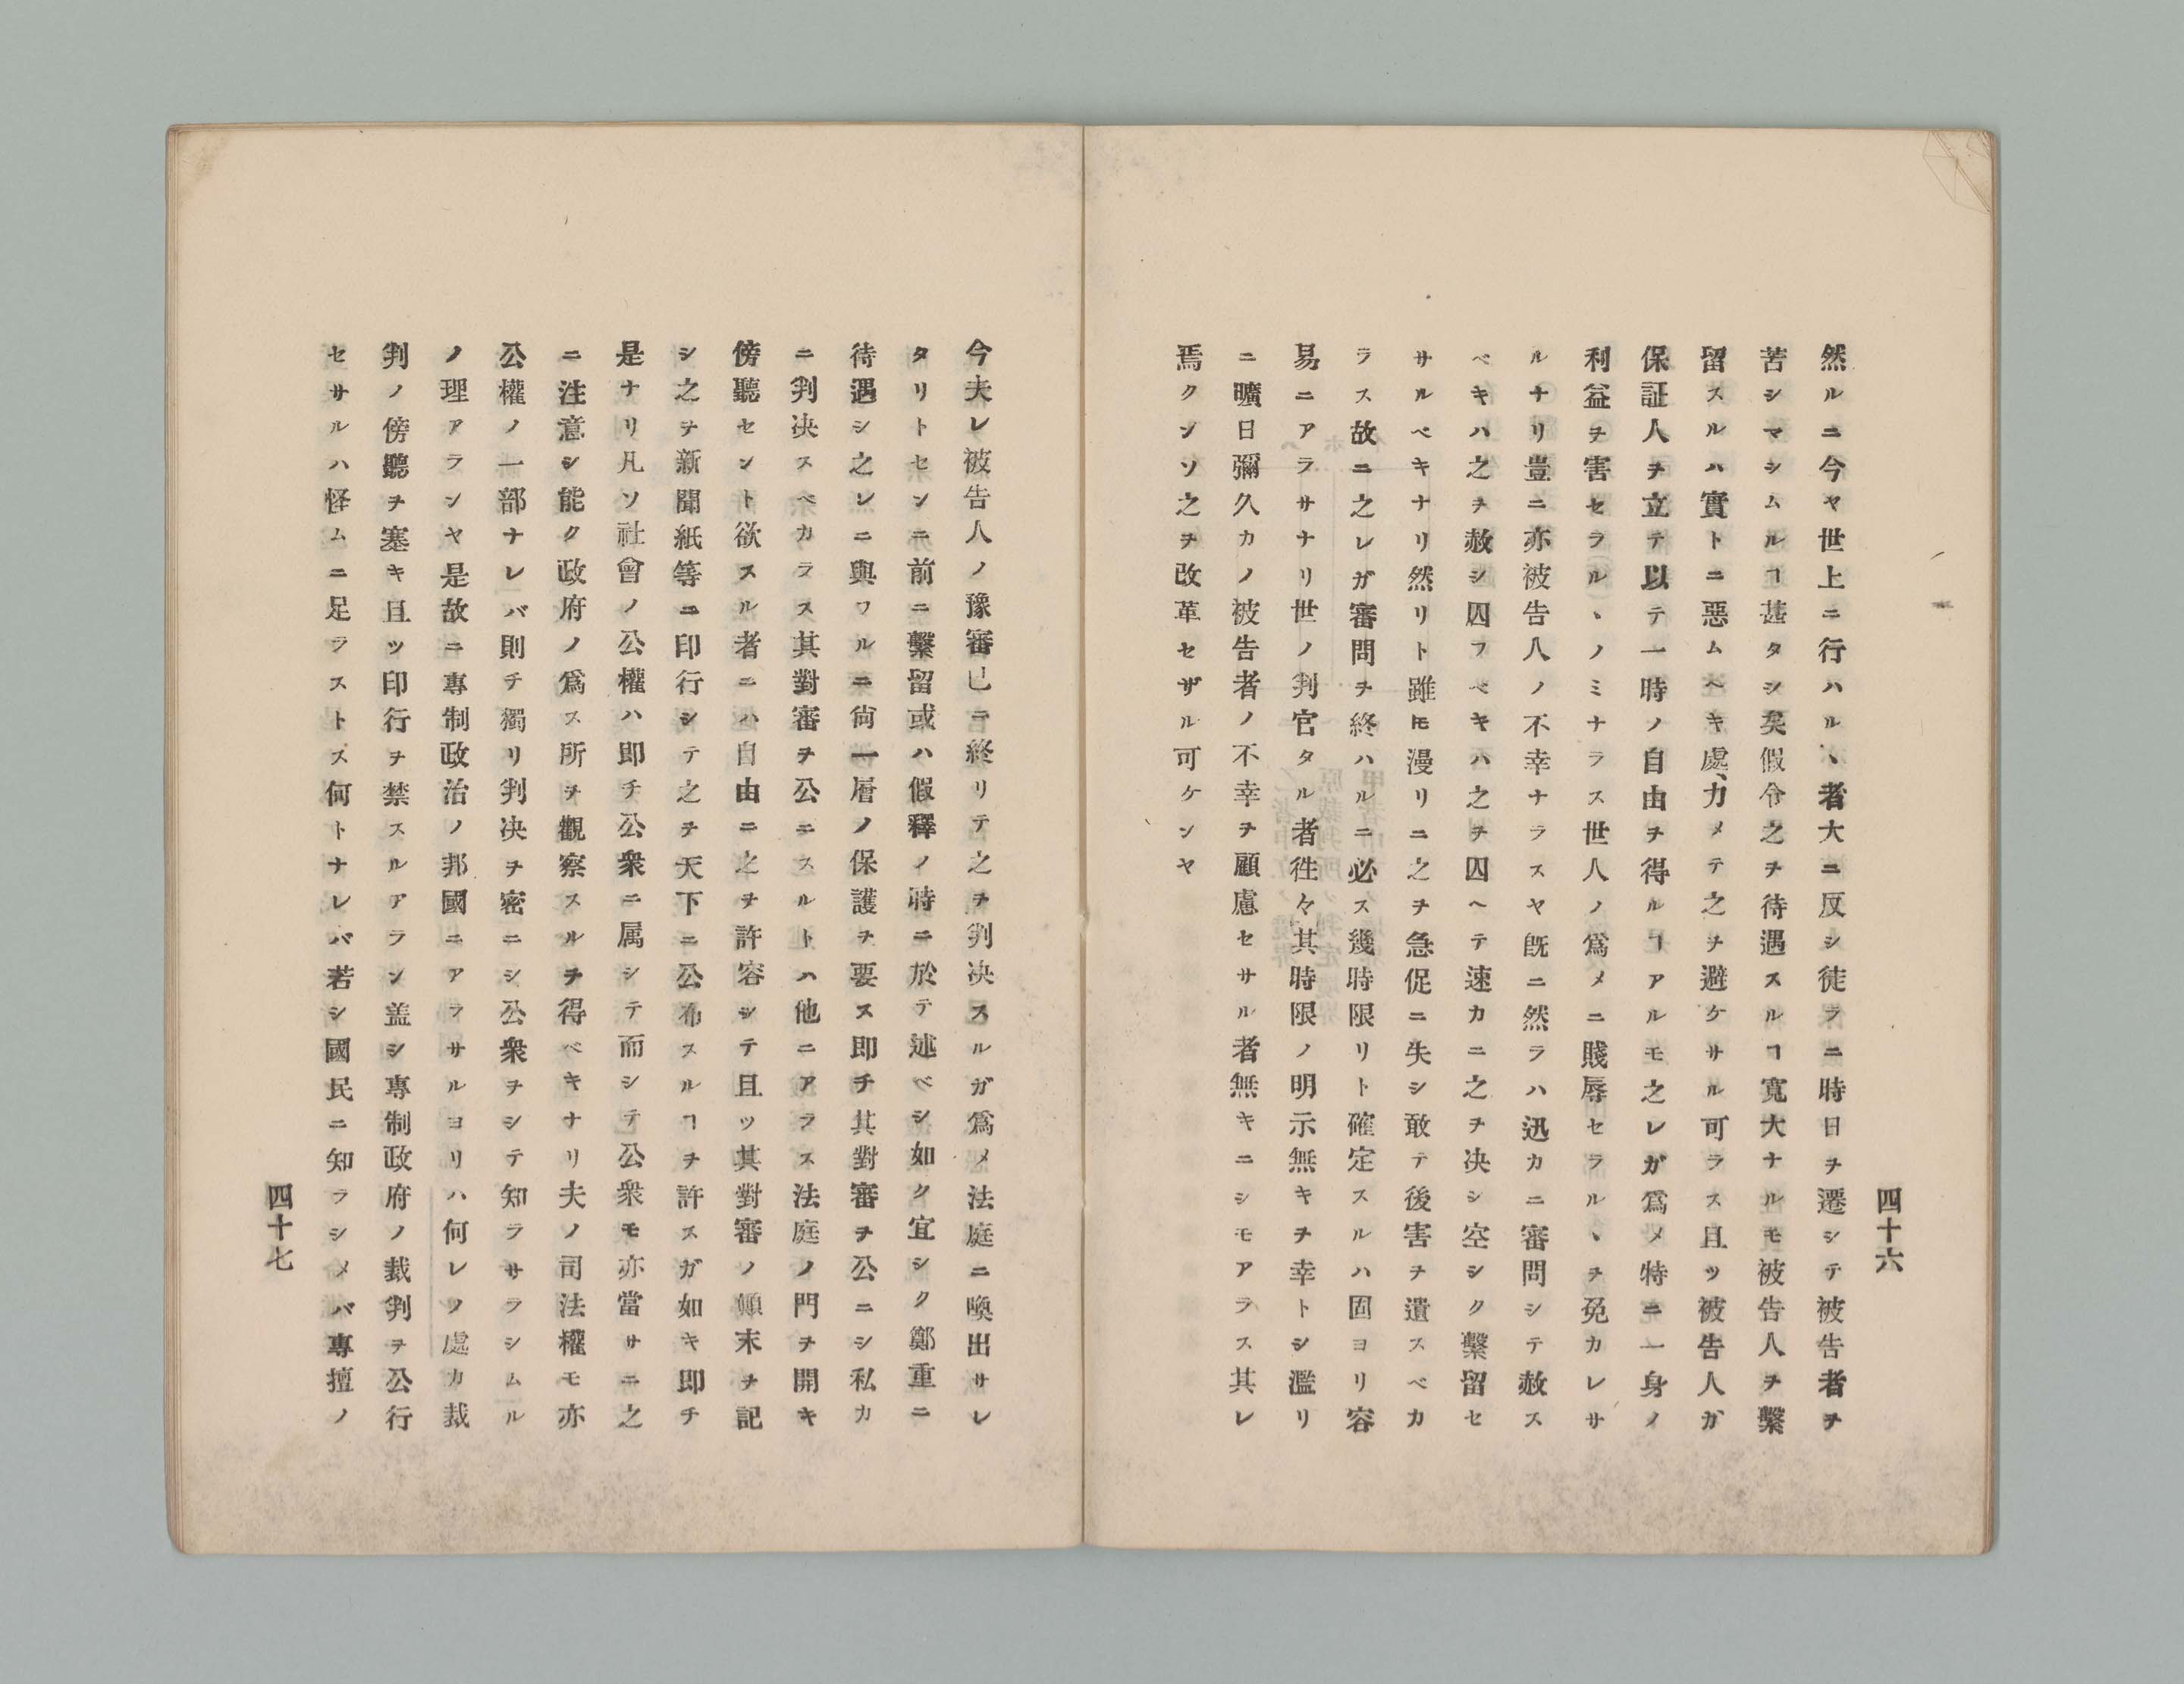 四十六
然ルニ今ヤ世上ニ行ハルヽ者大ニ反シ徒ラニ時日ヲ遷シテ被告者ヲ
苦シマシムルヿ甚タシ矣假令之ヲ待遇スルヿ寬大ナルモ被告人ヲ繫
留スルハ實トニ惡ムヘキ處、力メテ之ヲ避ケサル可ラス且ツ被告人ガ
保証人ヲ立テ以テ一時ノ自由ヲ得ルヿアルモ之レガ爲メ特ニ一身ノ
利益ヲ害セラルヽノミナラス世人ノ爲メニ賤辱セラルヽヲ免カレサ
ルナリ豈ニ亦被告人ノ不幸ナラスヤ既ニ然ラハ迅カニ審問シテ赦ス
ベキハ之ヲ赦シ囚フベキハ之ヲ囚ヘテ速カニ之ヲ决シ空シク繫留セ
サルベキナリ然リト雖モ漫リニ之ヲ急促ニ失シ敢テ後害ヲ遺スベカ
ラス故ニ之レガ審問ヲ終ハルニ必ス幾時限リト確定スルハ固ヨリ容
易ニアラサナリ世ノ判官タル者徃々其時限ノ明示無キヲ幸トシ濫リ
ニ曠日彌久カノ被告者ノ不幸ヲ顧慮セサル者無キニシモアラス其レ
焉クンソ之ヲ改革セザル可ケンヤ
今夫レ被告人ノ豫審已ニ終リテ之ヲ判决スルガ爲メ法庭ニ喚出サレ
タリトセンニ前ニ繫留或ハ假釋ノ時ニ於テ述ベシ如ク宜シク鄭重ニ
待遇シ之レニ與フルニ尙一層ノ保護ヲ要ス即チ其對審ヲ公ニシ私カ
ニ判决スベカラス其對審ヲ公ニスルトハ他ニアラス法庭ノ門ヲ開キ
傍聽セント欲スル者ニハ自由ニ之ヲ許容シテ且ツ其對審ノ顚末ヲ記
シ之ヲ新聞紙等ニ印行シテ之ヲ天下ニ公布スルヿヲ許スガ如キ即チ
是ナリ凡ソ社會ノ公權ハ即チ公衆ニ属シテ而シテ公衆モ亦當サニ之
ニ注意シ能ク政府ノ爲ス所ヲ觀察スルヲ得ベキナリ夫ノ司法權モ亦
公權ノ一部ナレバ則チ獨リ判决ヲ密ニシ公衆ヲシテ知ラサラシムル
ノ理アランヤ是故ニ專制政治ノ邦國ニアラサルヨリハ何レノ處カ裁
判ノ傍聽ヲ塞キ且ツ印行ヲ禁スルアラン盖シ專制政府ノ裁判ヲ公行
セサルハ怪ムニ足ラストス何トナレバ若シ國民ニ知ラシメバ專擅ノ
四十七